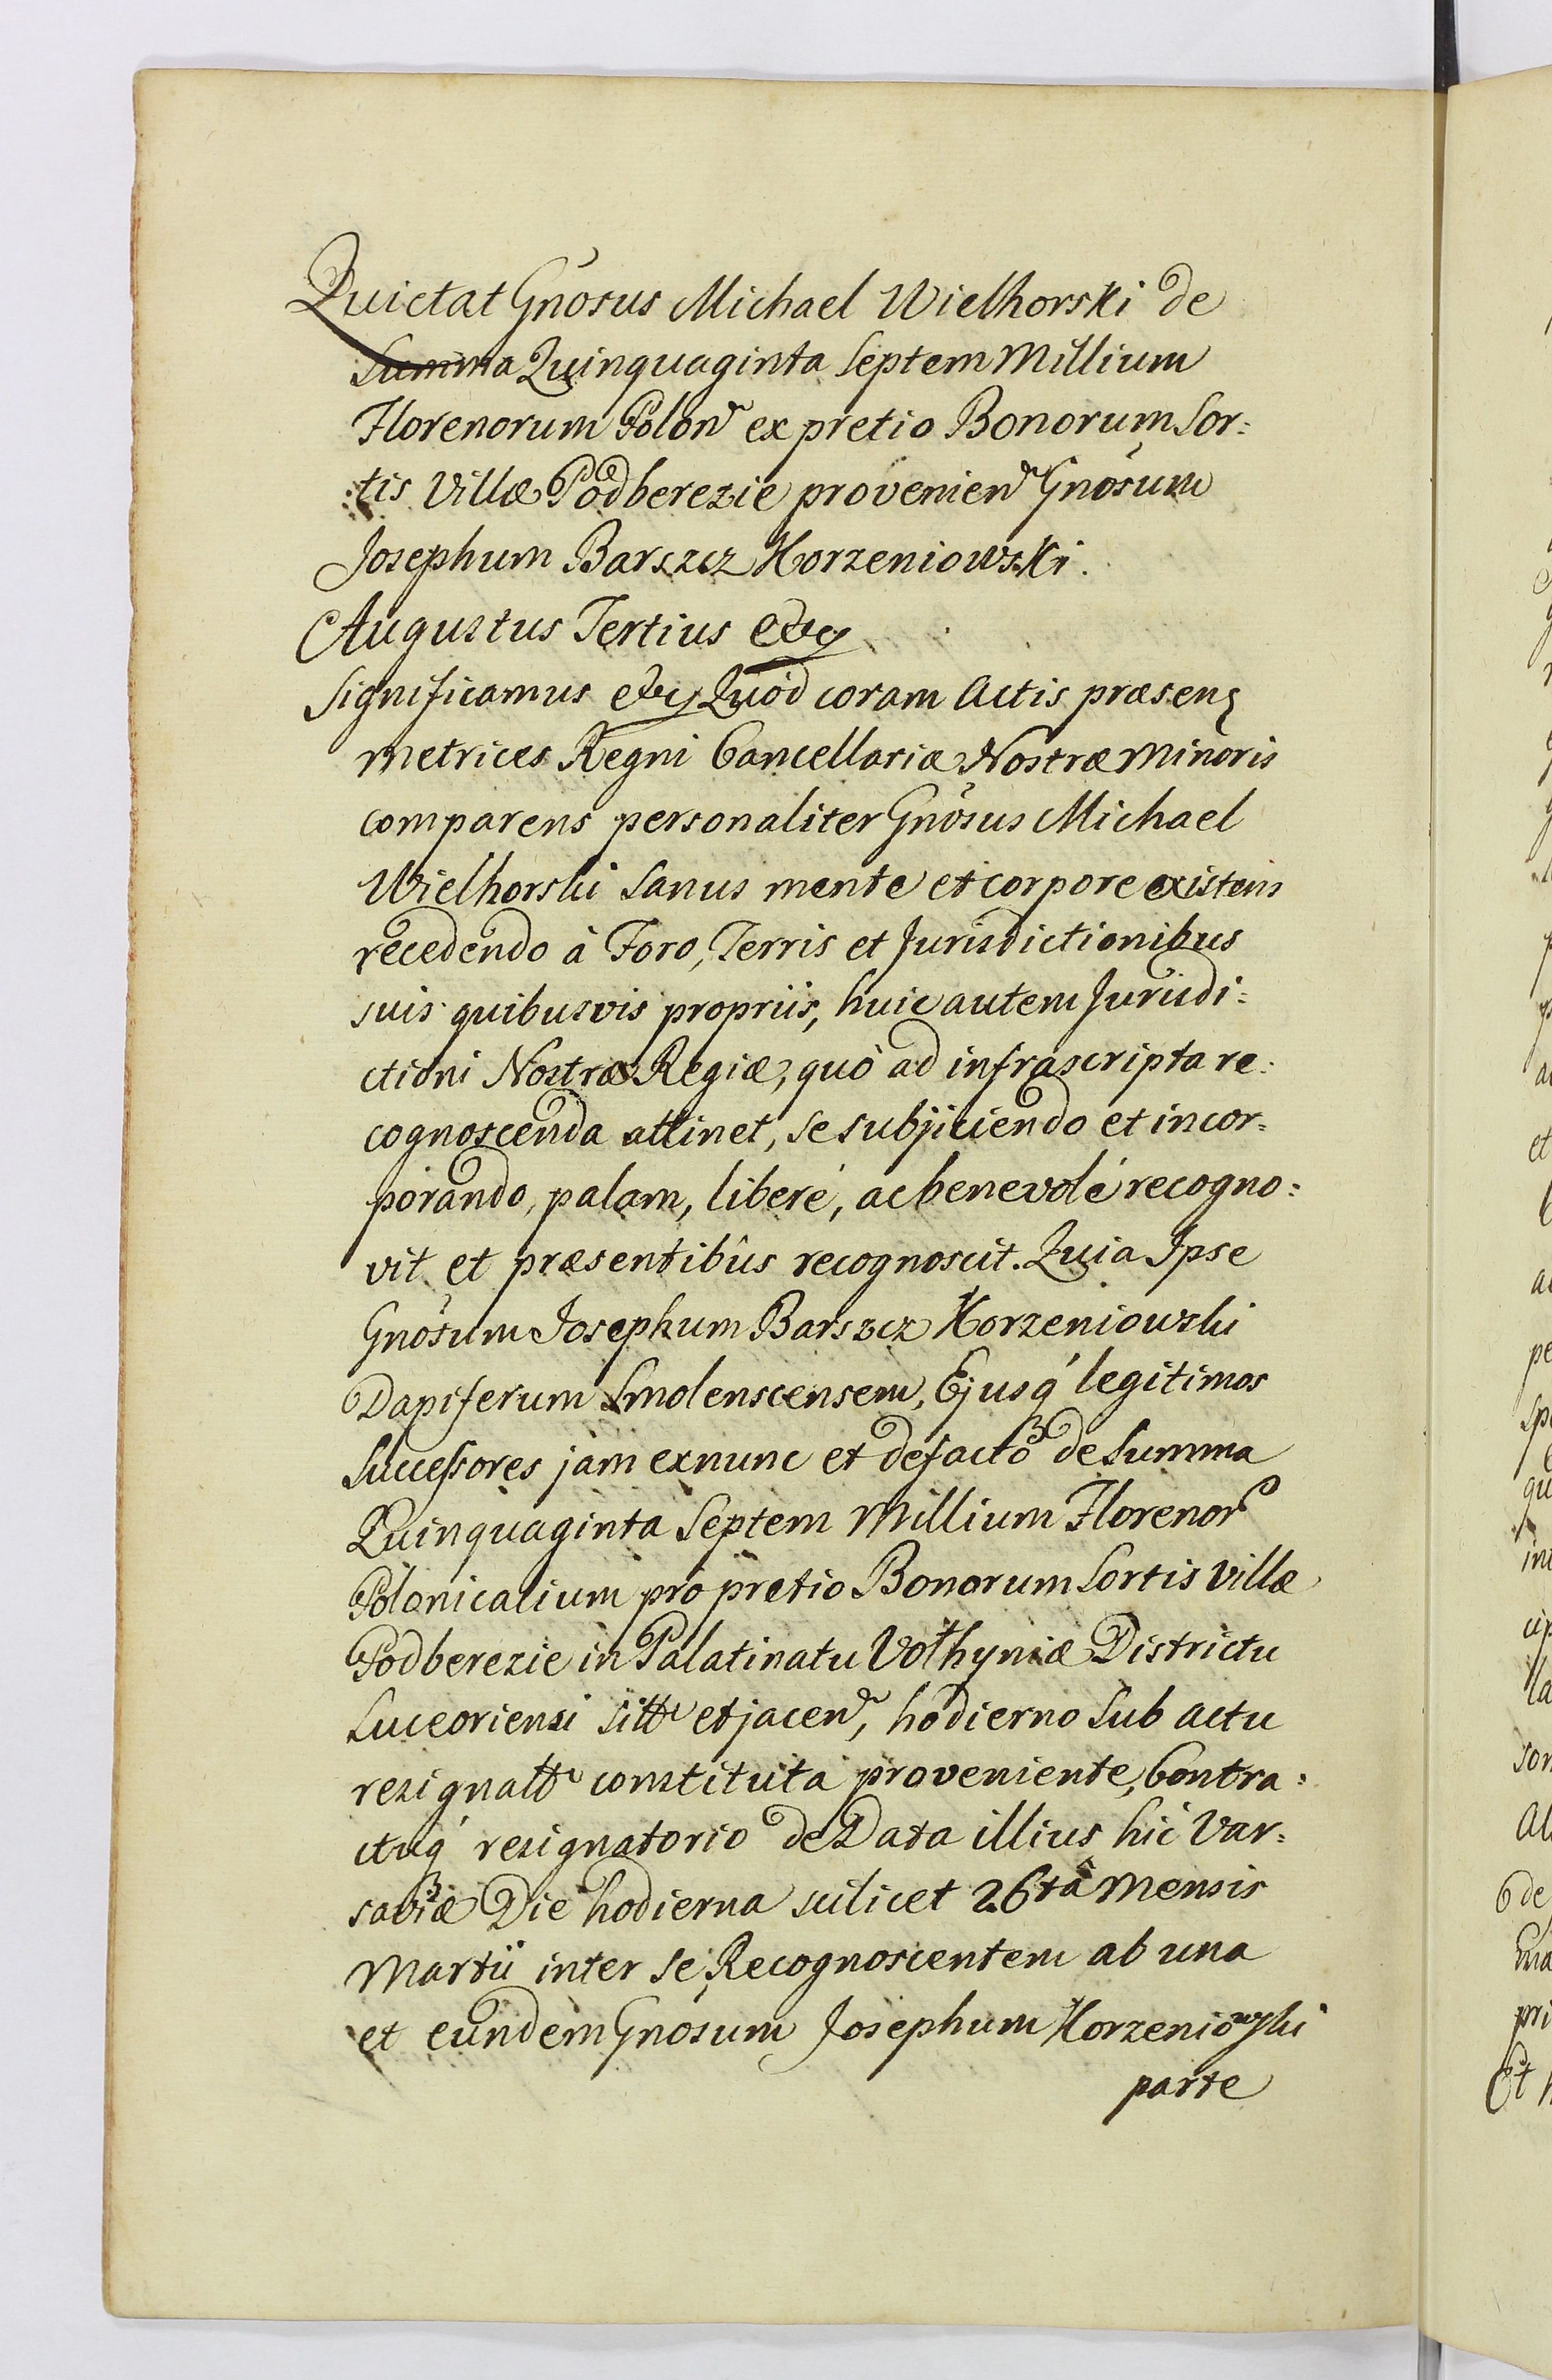 Quietat Gnosus Michael Wielhorski de
Summa Quinquaginta Septem Millium
Florenorum Polon ex pretio Bonorum Sor:
:tis Villæ Podberezie provenien Gnosum
Josephum Barszcz Korzeniowski.
Augustus Tertius etc
Significamus etc Quòd coram Actis præsen
Metrices Regni Cancellariæ Nostræ Minoris
comparens personaliter Gnosus Michael
Wielhorski Sanus mente et corpore existens
recedendo à Foro, Terris et Jurisdictionibus
suis quibusvis propriis, huic autem Jurisdi:
ctioni Nostræ Regiæ, quò ad infrascripta re:
cognoscenda attinet, se subjiciendo et incor:
porando, palam, liberé, ac benevolé recogno:
vit et præsentibûs recognoscit. Quia Ipse
Gnosum Josephum Barszcz Korzeniowski
Dapiferum Smolenscensem, Ejusq́ legitimos
Successores jam exnunc et defacto de Summa
Quinquaginta Septem Millium Florenor
Polonicalium pro pretio Bonorum Sortis Villæ
Podberezie in Palatinatu Volhyniæ Districtu
Luceoriensi sitt et jacen, hodierno Sub actu
resignatt constituta proveniente, Contra:
ctuq́ resignatorio de Data illius hic Var:
saviæ Die hodierna scilicet 26tâ Mensis
Martii inter se Recognoscentem ab una
et eundem Gnosum Josephum Korzeniowski
parte